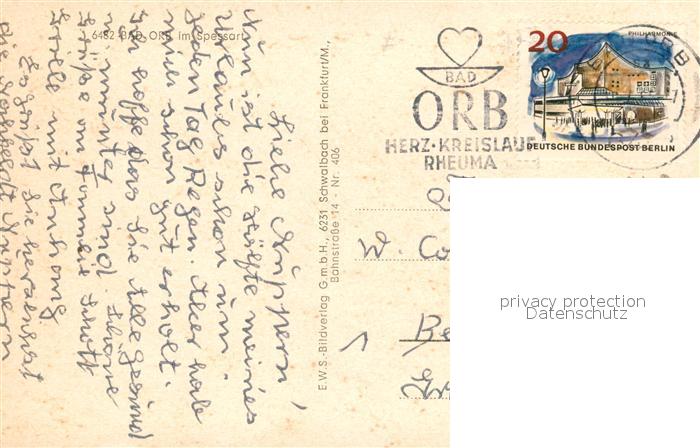 6482 BAD ORB im Spessart
Liebe
Nun ist die Hälfte meines
Urlaubs schon um
Jeden Tag Regen. Aber habe
mich schon gut erholt.
Ich hoffe das Sie alle gesund
u. munter sind. Schöne
Grüße an
mit Anhang
Es grüßt Sie herzlichst
die
E.W.S.-Bildverlag G.m.b.H., 6231 Schwalbach bei Frankfurt/M.,
Bahnstraße 14 - Nr. 406
BAD
ORB
HERZ·KREISLAUF
RHEUMA
20
PHILHARMONIE
DEUTSCHE BUNDESPOST BERLIN
ORB
W. Co
Be
privacy protection
Datenschutz